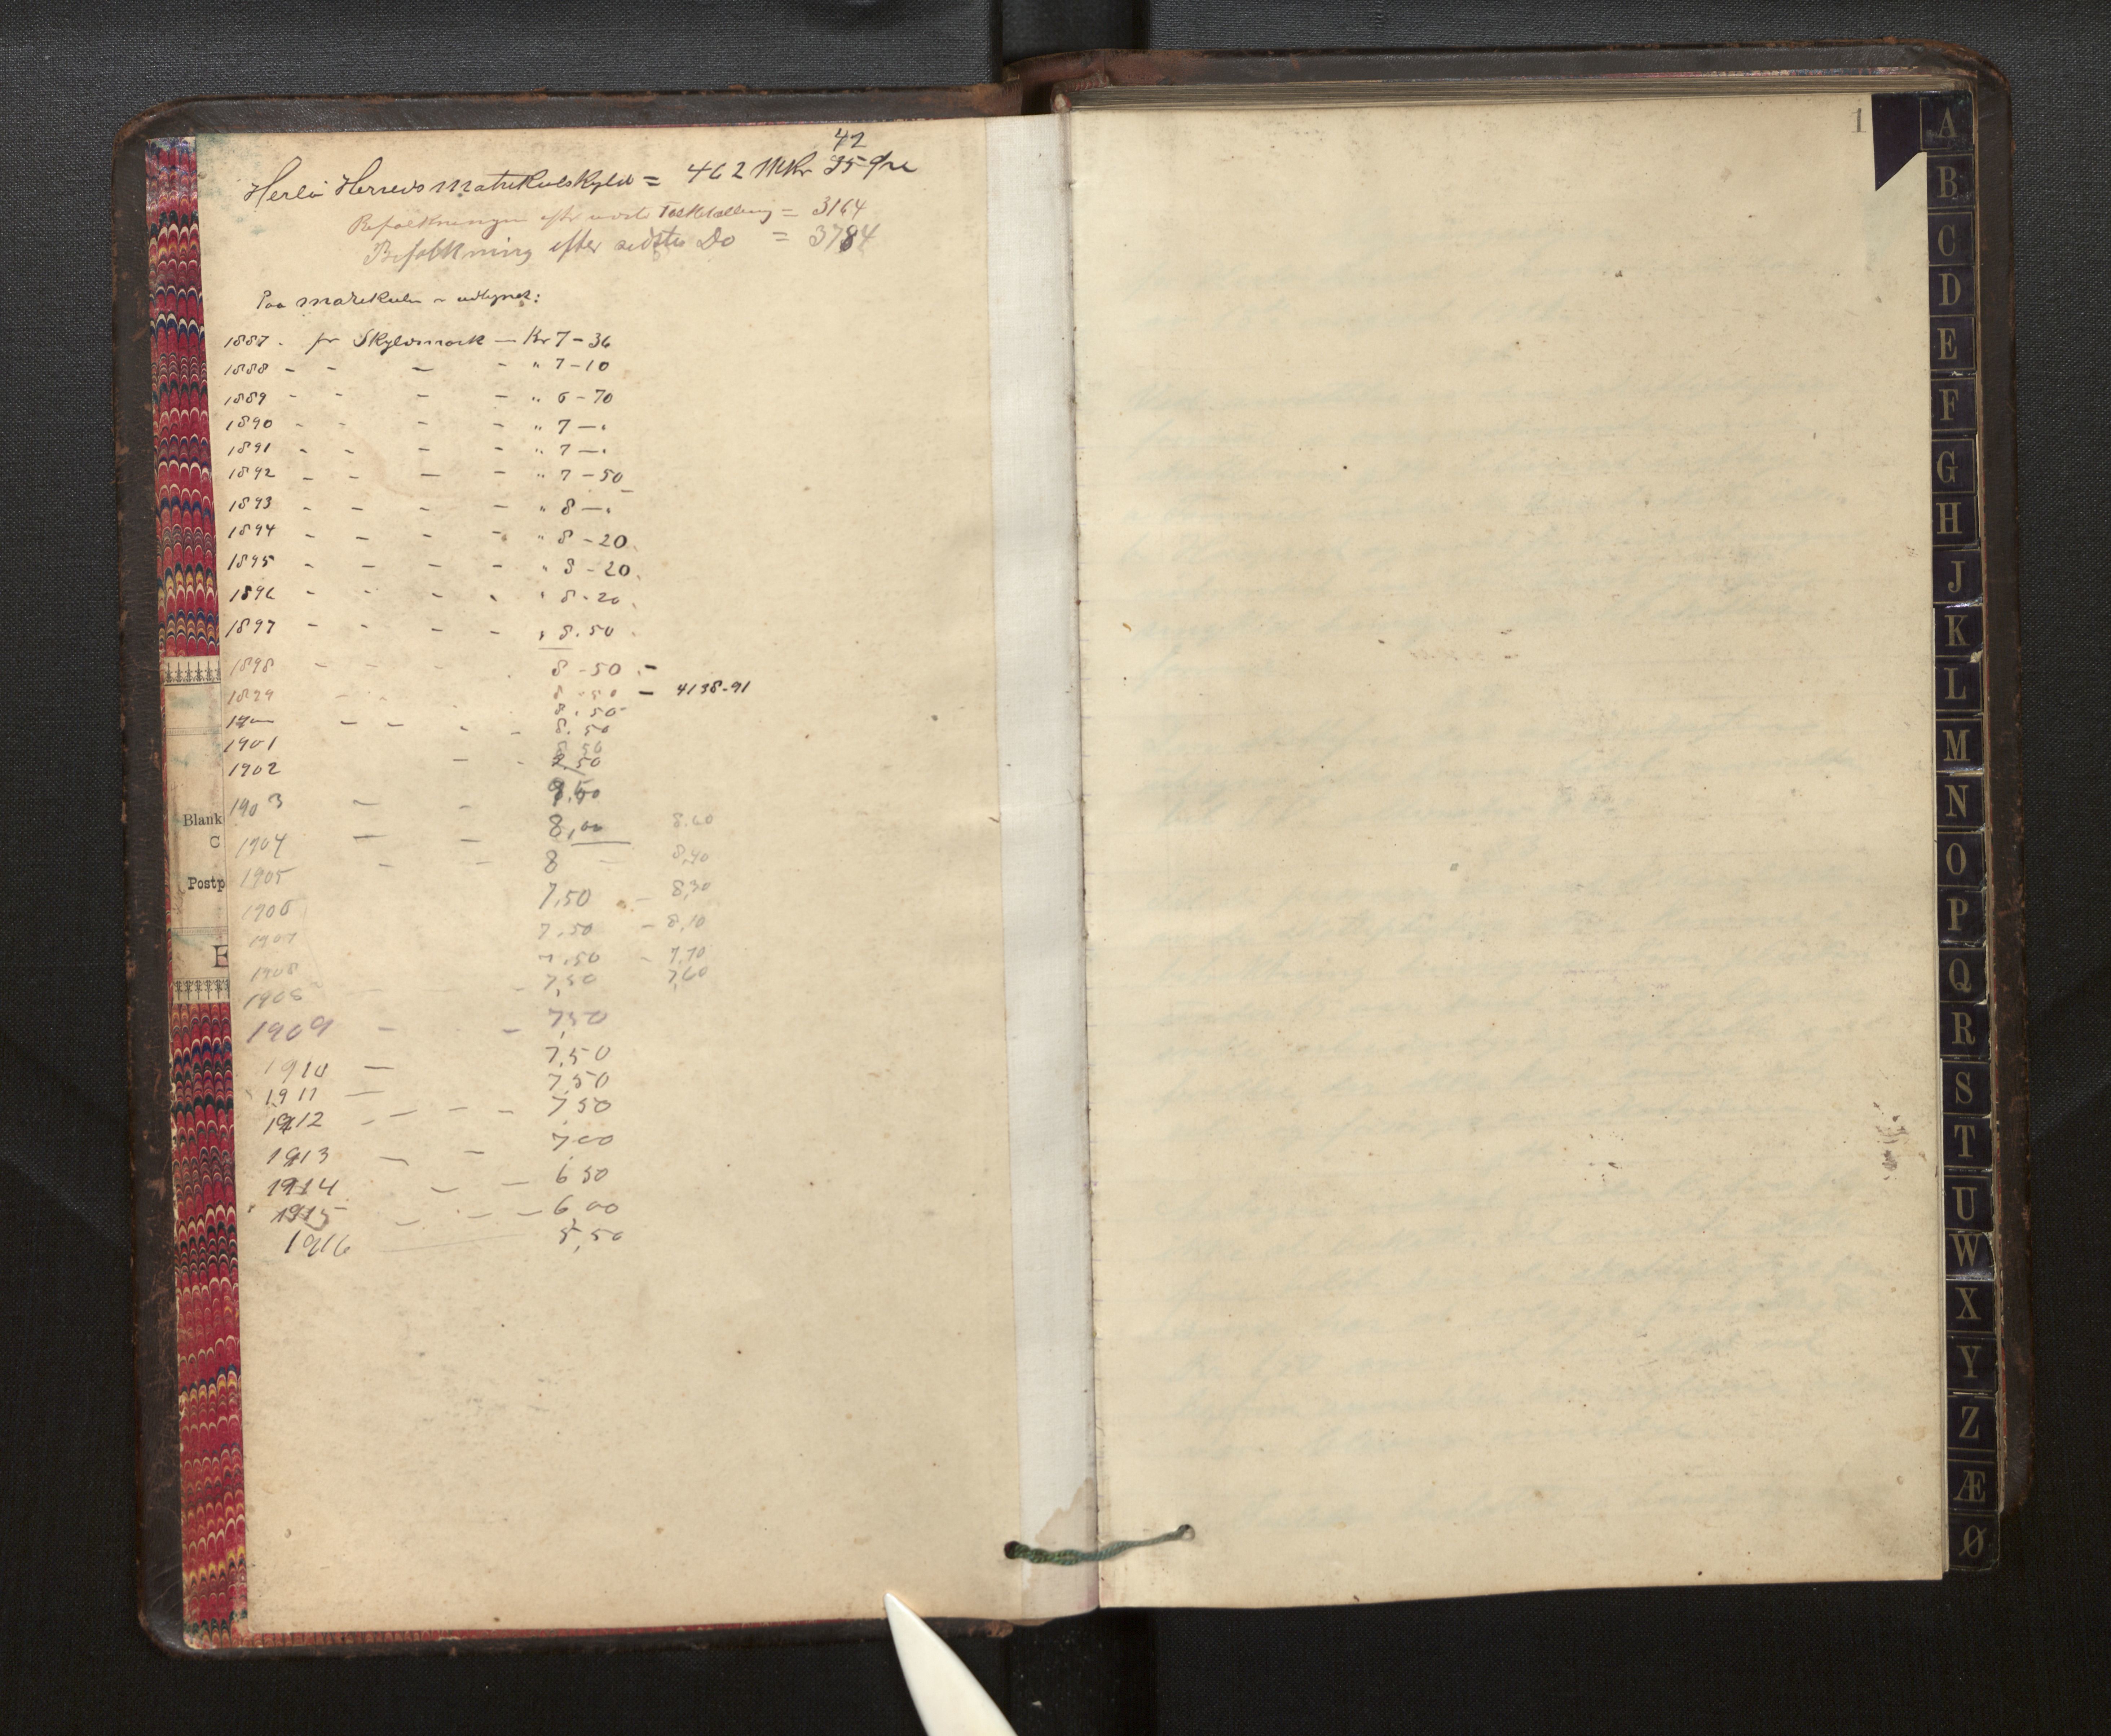 42
Herlø Herreds Matrikulskyld = 462 Mkr 25 Øre
Befolkningen efter Folketælling = 3164
Befolkning efter sidste Do = 3784
Paa Matrikulen er udlignet:
1887 - pr Skyldmark — Kr 7-36
1888 - - - - " 7-10
1889 - - - - " 6-70
1890 - - - - " 7 —"
1891 - - - - " 7 —"
1892 - - - - " 7-50
1893 - - - - " 8 —"
1894 - - - - " 8-20
1895 - - - - " 8-20
1896 - - - - " 8-20
1897 - - - - " 8.50
1898 - - - 8-50 -
1899 - - 8-50 - 4138-91
8.50
1900 - - - - 8.50
1901 8 50
1902 - - 8.50
1903 - -
1904 - - 8,00 8.60
1905 - - 8 - 8,40
1906 7,50 - 8,30
1907 7,50 - 8,10
1908 7,50 - 7,70
7,50 7,60
1909 - - 7,50
1910 - 7,50
1911 - 7,50
1912 - - - - 7,50
1913 - - 7,00
1914 - - 6 50
1915 - - - - 6 00
1916 5,50
Blank
C
Postp
E
1
A
B
C
D
E
F
G
H
J
K
L
M
N
O
P
Q
R
S
T
U
W
X
Y
Z
Æ
Ø